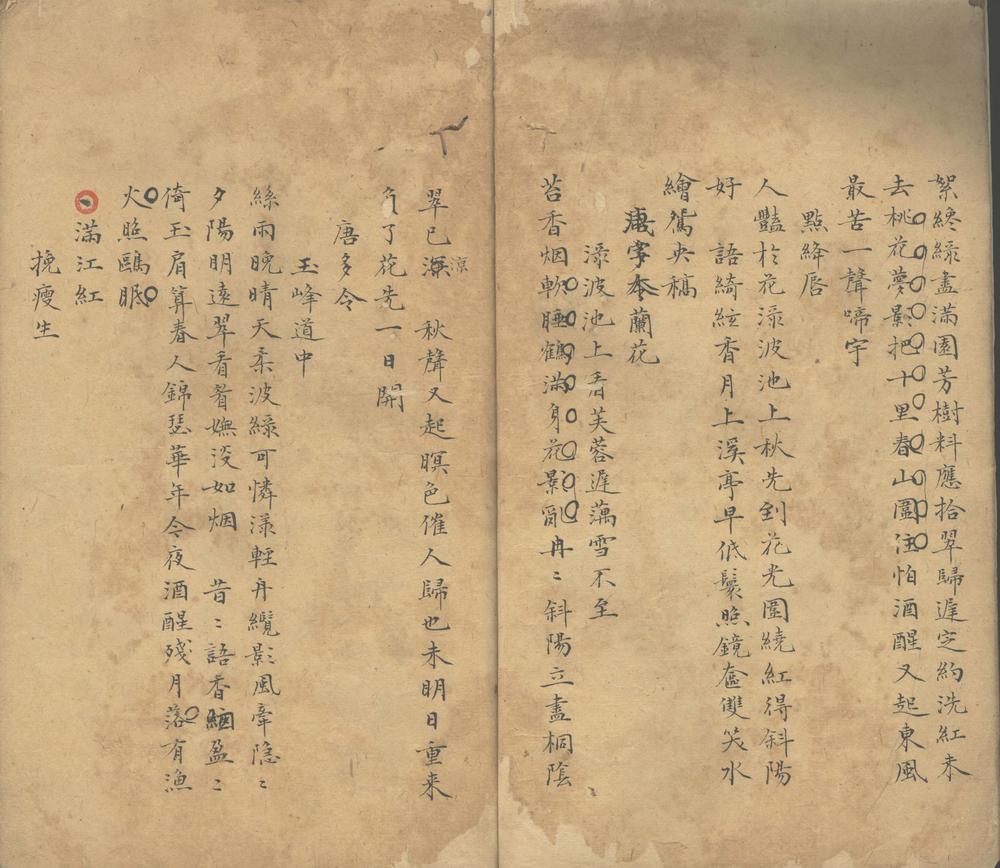 絮絳綠盡滿園芳樹料應拾翠歸遲定約洗紅未
去桃花夢影把十里春山圍住怕酒醒又起東風
最苦一聲啼宇
點絳唇
人豔於花淥波池上秋先到花光圍繞紅得斜陽
好 語綺絃香月上溪亭早低鬟照鏡奩雙笑水
繪鴛央稿
減字木蘭花
淥波池上看芙蓉遲藕雪不至
苔香烟軟睡鶴滿身花影亂冉〻斜陽立盡桐陰
翠已涼 秋聲又起暝色催人歸也未明日重来
負了花先一日開
唐多令
玉峰道中
絲雨晚晴天柔波綠可憐漾輕舟纜影風牽隐〻
夕陽明遠翠看着嫵没如烟 昔〻語香緬盈〻
倚玉肩算春人錦瑟華年今夜酒醒殘月落有漁
火照鷗眠
滿江紅
挽瘦生